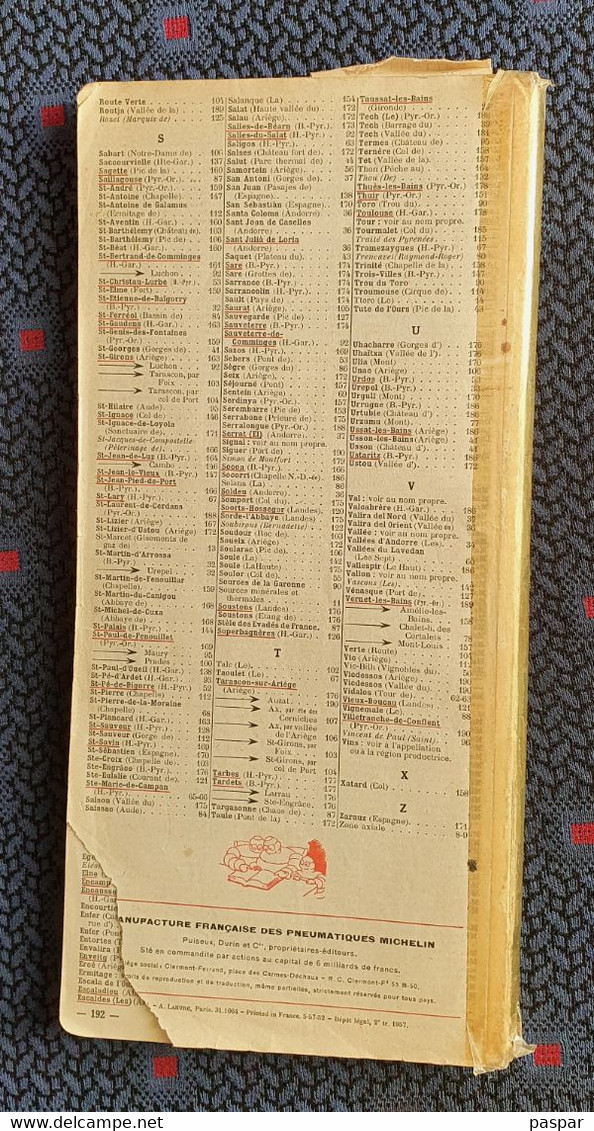 Route Verte 104
Routja (Vallée de la) 189
Rozel (Marquis de) 125
S
Sabart (Notre-Dame de) 106
Saccourvielle (Hte-Gar.) 137
Sagette (Pic de la) 160
Saillagouse (Pyr.-Or.) 87
St-André (Pyr.-Or.) 159
St-Antoine (Chapelle) 147
St-Antoine de Galamus
(Ermitage de) 112
St-Aventin (H.-Gar.) 160
St-Barthélemy (Château de) 103
St-Barthélemy (Pic de) 106
St-Béat (H.-Gar.) 160
St-Bertrand-de-Comminges
(H.-Gar.) 161
Luchon 92
St-Christau-Lurbe (B.-Pyr.) 53
St-Elme (Fort) 159
St-Etienne-de-Baïgorry
(B.-Pyr.) 32
St-Ferréol (Bassin de) 84
St-Gaudens (H.-Gar.) 163
St-Genis-des-Fontaines
(Pyr.-Or.) 159
St-Georges (Gorges de) 41
St-Girons (Ariège) 163
Luchon 92
Tarascon, par
Foix 103
Tarascon, par
col de Port 104
St-Hilaire (Aude) 95
St-Ignace (Col de) 166
St-Ignace-de-Loyola
(Sanctuaire de) 171
St-Jacques-de-Compostelle
(Pèlerinage de) 166
St-Jean-de-Luz (B.-Pyr.) 164
Cambo 146
St-Jean-le-Vieux (B.-Pyr.) 147
St-Jean-Pied-de-Port
(B.-Pyr.) 166
St-Lary (H.-Pyr.) 67
St-Laurent-de-Cerdans
(Pyr.-Or.) 188
St-Lizier (Ariège) 167
St-Lizier-d'Ustou (Ariège) 172
St-Marcet (Gisements de
gaz de) 13
St-Martin-d'Arrossa
(B.-Pyr.) 32
Urepel 32
St-Martin-de-Fenouillar
(Chapelle) 159
St-Martin-du-Canigou
(Abbaye de) 168
St-Michel-de-Cuxa
(Abbaye de) 168
St-Palais (B.-Pyr.) 144
St-Paul-de-Fenouillet
(Pyr.-Or.) 169
Maury 95
Prades 100
St-Paul-d'Oueil (H.-Gar.) 138
St-Pé-d'Ardet (H.-Gar.) 93
St-Pé-de-Bigorre (H.-Pyr.) 52
St-Pierre (Chapelle) 112
St-Pierre-de-la-Moraine
(Chapelle) 68
St-Plancard (H.-Gar.) 163
St-Sauveur (H.-Pyr.) 128
St-Sauveur (Gorge de) 112
St-Savin (H.-Pyr.) 97
St-Sébastien (Espagne) 170
Ste-Croix (Chapelle de) 153
Ste-Engrâce (B.-Pyr.) 176
Ste-Eulalie (Courant de) 121
Ste-Marie-de-Campan
(H.-Pyr.) 65-66
Saison (Vallée du) 175
Saissac (Aude) 84
Salanque (La) 154
Salat (Haute vallée du) 172
Salau (Ariège) 172
Salies-de-Béarn (B.-Pyr.) 173
Salies-du-Salat (H.-Gar.) 173
Saligos (H.-Pyr.) 97
Salses (Château fort de) 172
Salut (Parc thermal de) 44
Samortein (Ariège) 56
San Antoni (Gorges de) 37
San Juan (Pasajes de)
(Espagne) 138
San Sebastián (Espagne) 170
Santa Coloma (Andorre) 36
Sant Joan de Caselles
(Andorre) 36
Sant Julià de Loria
(Andorre) 36
Saquet (Plateau du) 43
Sare (B.-Pyr.) 173
Sare (Grottes de) 174
Sarrance (B.-Pyr.) 174
Sarrancolin (H.-Pyr.) 174
Sault (Pays de) 174
Saurat (Ariège) 105
Sauvegarde (Pic de) 127
Sauveterre (B.-Pyr.) 174
Sauveterre-de-
Comminges (H.-Gar.) 92
Sazos (H.-Pyr.) 97
Schera (Pont de la) 86
Sègre (Gorges du) 86
Seix (Ariège) 172
Séjourné (Pont) 157
Sentein (Ariège) 69
Serdinya (Pyr.-Or.) 157
Serembarre (Pic de) 153
Serrabone (Prieuré de) 175
Serralongue (Pyr.-Or.) 188
Serrat (El) (Andorre) 37
Signal : voir au nom propre.
Siguer (Port de) 190
Simon de Montfort 179
Socoa (B.-Pyr.) 166
Socorri (Chapelle N.-D.-de) 186
Solana (La) 86
Soldeu (Andorre) 36
Somport (Col du) 175
Soorts-Hossegor (Landes) 120
Sorde-l'Abbaye (Landes) 175
Soubirous (Bernadette) 122
Soudour (Roc de) 103
Soueix (Ariège) 172
Soularac (Pic de) 106
Soule (Le)
Soule (LaHaute) 175
Soulor (Col de) 55
Sources de la Garonne 90
Sources minérales et
thermales 11
Soustons (Landes) 176
Soustons (Etang de) 176
Stèle des Evadés de France 87
Superbagnères (H.-Gar.) 126
T
Talc (Le) 102
Taoulet (Le) 67
Tarascon-sur-Ariège
(Ariège) 176
Auzat
Ax, par rte des
Corniches 107
Ax, par vallée
de l'Ariège 106
St-Girons, par
Foix 103
St-Girons, par
col de Port 104
Tarbes (H.-Pyr.) 177
Tardets (B.-Pyr.) 177
Larrau 176
Ste-Engrâce 176
Targasonne (Chaos de) 87
Taule (Pont de la) 172
Taussat-les-Bains
(Gironde)
Tech (Le) (Pyr.-Or.)
Tech (Barrage du) 89
Tech (Vallée du)
Termes (Château de) 95
Ternère (Col de)
Tet (Vallée de la) 157
Thon (Péche au) 164
Thou (De) 132
Thuès-les-Bains (Pyr.-Or.) 178
Thuir (Pyr.-Or.) 151
Toro (Trou du) 90
Toulouse (H.-Gar.) 178
Tour : voir au nom propre.
Tourmalet (Col du) 185
Traité des Pyrénées 115
Tramezaygues (H.-Pyr.) 67
Trencavel (Raymond-Roger) 80
Trinité (Chapelle de la)
Trois-Villes (B.-Pyr.)
Trou du Toro 90
Troumouse (Cirque de) 114
Ttoro (Le) 14
Tute de l'Ours (Pic de la) 43
U
Uhacharre (Gorges d') 176
Uhaitxa (Vallée de l') 176
Ulia (Mont) 170
Unac (Ariège)
Urdos (B.-Pyr.) 53
Urepel (B.-Pyr.)
Urgull (Mont) 170
Urrugne (B.-Pyr.) 186
Urtubie (Château d') 186
Urzumu (Mont) 77
Ussat-les-Bains (Ariège) 186
Usson-les-Bains (Ariège) 41
Usson (Château d') 41
Ustaritz (B.-Pyr.) 186
Ustou (Vallée d') 172
V
Val : voir au nom propre.
Valcabrère (H.-Gar.)
Valira del Nord (Vallée du) 37
Valira del Orient (Vallée) 36
Vallée : voir au nom propre.
Vallées d'Andorre (Les) 34
Vallées du Lavedan
(Les Sept)
Vallespir (Le Haut)
Vallon : voir au nom propre.
Vascons (Les)
Vénasque (Port de) 127
Vernet-les-Bains (Pyr.-Or.) 189
Amélie-les-
Bains 158
Chalet-h. des
Cortalets 78
Mont-Louis 157
Verte (Route)
Vic (Ariège)
Vic-Bilh (Vignobles du)
Vicdessos (Ariège)
Vicdessos (Vallée du) 190
Vidalos (Tour de) 62-63
Vieux-Boucau (Landes) 121
Vignemale (Le) 88
Villefranche-de-Conflent
(Pyr.-Or.) 190
Vincent de Paul (Saint) 96
Vins : voir à l'appellation
ou à la région productrice.
X
Xatard (Col) 158
Z
Zarauz (Espagne) 171
Zone axiale 8-9
Encamp
Encausse
(H.-Gar
Encourtie
Enfer (Ca
rue d')
Enfer (Pon
Entortes (
Envalira (
Enveitg (
Ercé (Ariè
Ermitage :
Escala de l'O
Escaladieu (A
Escaldes (Les) (A
ANUFACTURE FRANÇAISE DES PNEUMATIQUES MICHELIN
Puiseux, Durin et Cie, propriétaires-éditeurs.
Sté en commandite par actions au capital de 6 milliards de francs.
iège social : Clermont-Ferrand, place des Carmes-Déchaux - R. C. Clermont-Fd 55 B-50.
oits de reproduction et de traduction, même partielles, strictement réservés pour tous pays.
- A. LAHURE, Paris. 31.1064 - Printed in France. 5-57-52 - Dépôt légal, 2e tr. 1957.
— 192 —
paspar